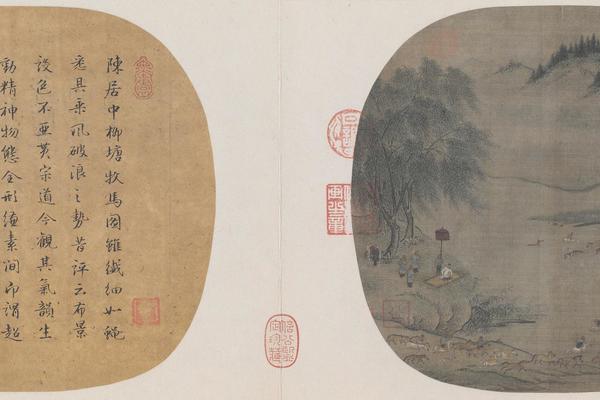 陳居中柳塘牧馬圖雖纖細如蠅
悉具乘風破浪之勢昔評云布景
設色不亞黃宗道今觀其氣韻生
動精神物態全形縑素間即謂超